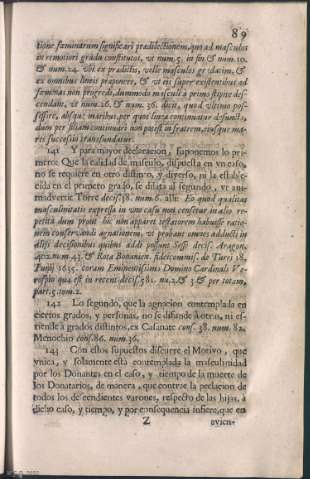 89
tione fœminarum significari prædilectionem, qui ad masculos
in remotiori gradu constitutos, ut num. 5. in fin & num. 10.
& num. 24. ubi ex prædictis, velle masculos gradatim, &
ex omnibus lineis præponere, & ut eis super existentibus ad
fœminas non progredi, dummodo masculi à primo stipite des-
cendant, ut num. 26. & num. 36. dicit, quod ultimo pos-
sessore, absque maribus, per quos linea continuatur defuncto,
dum per filiam continuari non potest in fratrem, eiusque ma-
res successio transfundatur.
141 Y para mayor declaracion, suponemos lo pri-
mero: Que la calidad de masculo, dispuesta en un caso,
no se requiere en otro distinto, y diverso, ni la estable-
cida en el primero grado, se dilata al segundo, ut ani-
madvertit Torre decis. 38. num. 6. ait: Eo quod qualitas
masculinitatis expressa in uno casu non censetur in alio, re-
petita dum prout hic non apparet testatorem habuisse ratio-
nem conservandi agnationem, ut probant omnes adducti in
aliis decisionibus quibus addi possunt Sesse decis. Aragon.
402. num. 43. & Rota Bononien. fideicommiss. de Turri 18.
Junij 1635. coram Eminentissimo Domino Cardinali Ve-
rospio quæ est in recent decis. 381. nu. 2. & 3. & per totam,
part. 5. tom. 2.
142 Lo segundo, que la agnacion contemplada en
ciertos grados, y personas, no se difunde à otras, ni es-
tiende à grados distintos, ex Casanate cons. 38. num. 82.
Menochio cons. 86. num. 36.
143 Con estos supuestos discurre el Motivo, que
unica, y solamente està contemplada la masculinidad
por los Donantes en el caso, y tiempo de la muerte de
los Donatarios, de manera, que contrae la prelacion de
todos los descendientes varones, respecto de las hijas, à
dicho caso, y tiempo, y por consequencia infiere, que en
Z
avien-